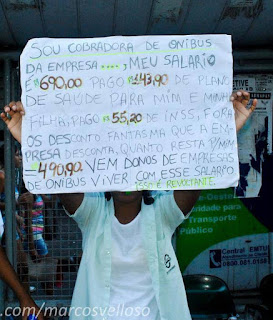 SOU COBRADORA DE ONIBUS
DA EMPRESA ...., MEU SALARIO
É $690,00 PAGO $143,90 DE PLANO
DE SAÚDE PARA MIM E MINHA
FILHA, PAGO $55,20 DE INSS, FORA
OS DESCONTO FANTASMA QUE A EM-
PRESA DESCONTA. QUANTO RESTA P/MIM
$490,90 VEM DONOS DE EMPRESAS
DE ONIBUS VIVER COM ESSE SALARIO
ISSO É REVOLTANTE
Transporte
Público
Central EMTU
0800.081.0158
.com/marcosvelloso